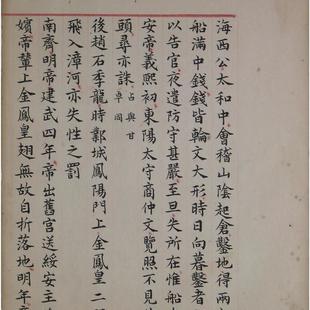 海西公太和中會稽山陰起倉鑿地得兩
船滿中錢錢皆輪文大形時日向暮鑿者
以告官夜遣防守甚嚴至旦失所在惟船
安帝義熙初東陽太守商仲文覽照不見
頭尋亦誅占與甘卓同
後趙石季龍時鄴城鳳陽門上金鳳皇二
飛入漳河亦失性之罰
南齊明帝建武四年帝出舊宮送綏安主
嬪帝輦上金鳳皇翅無故自折落地明年